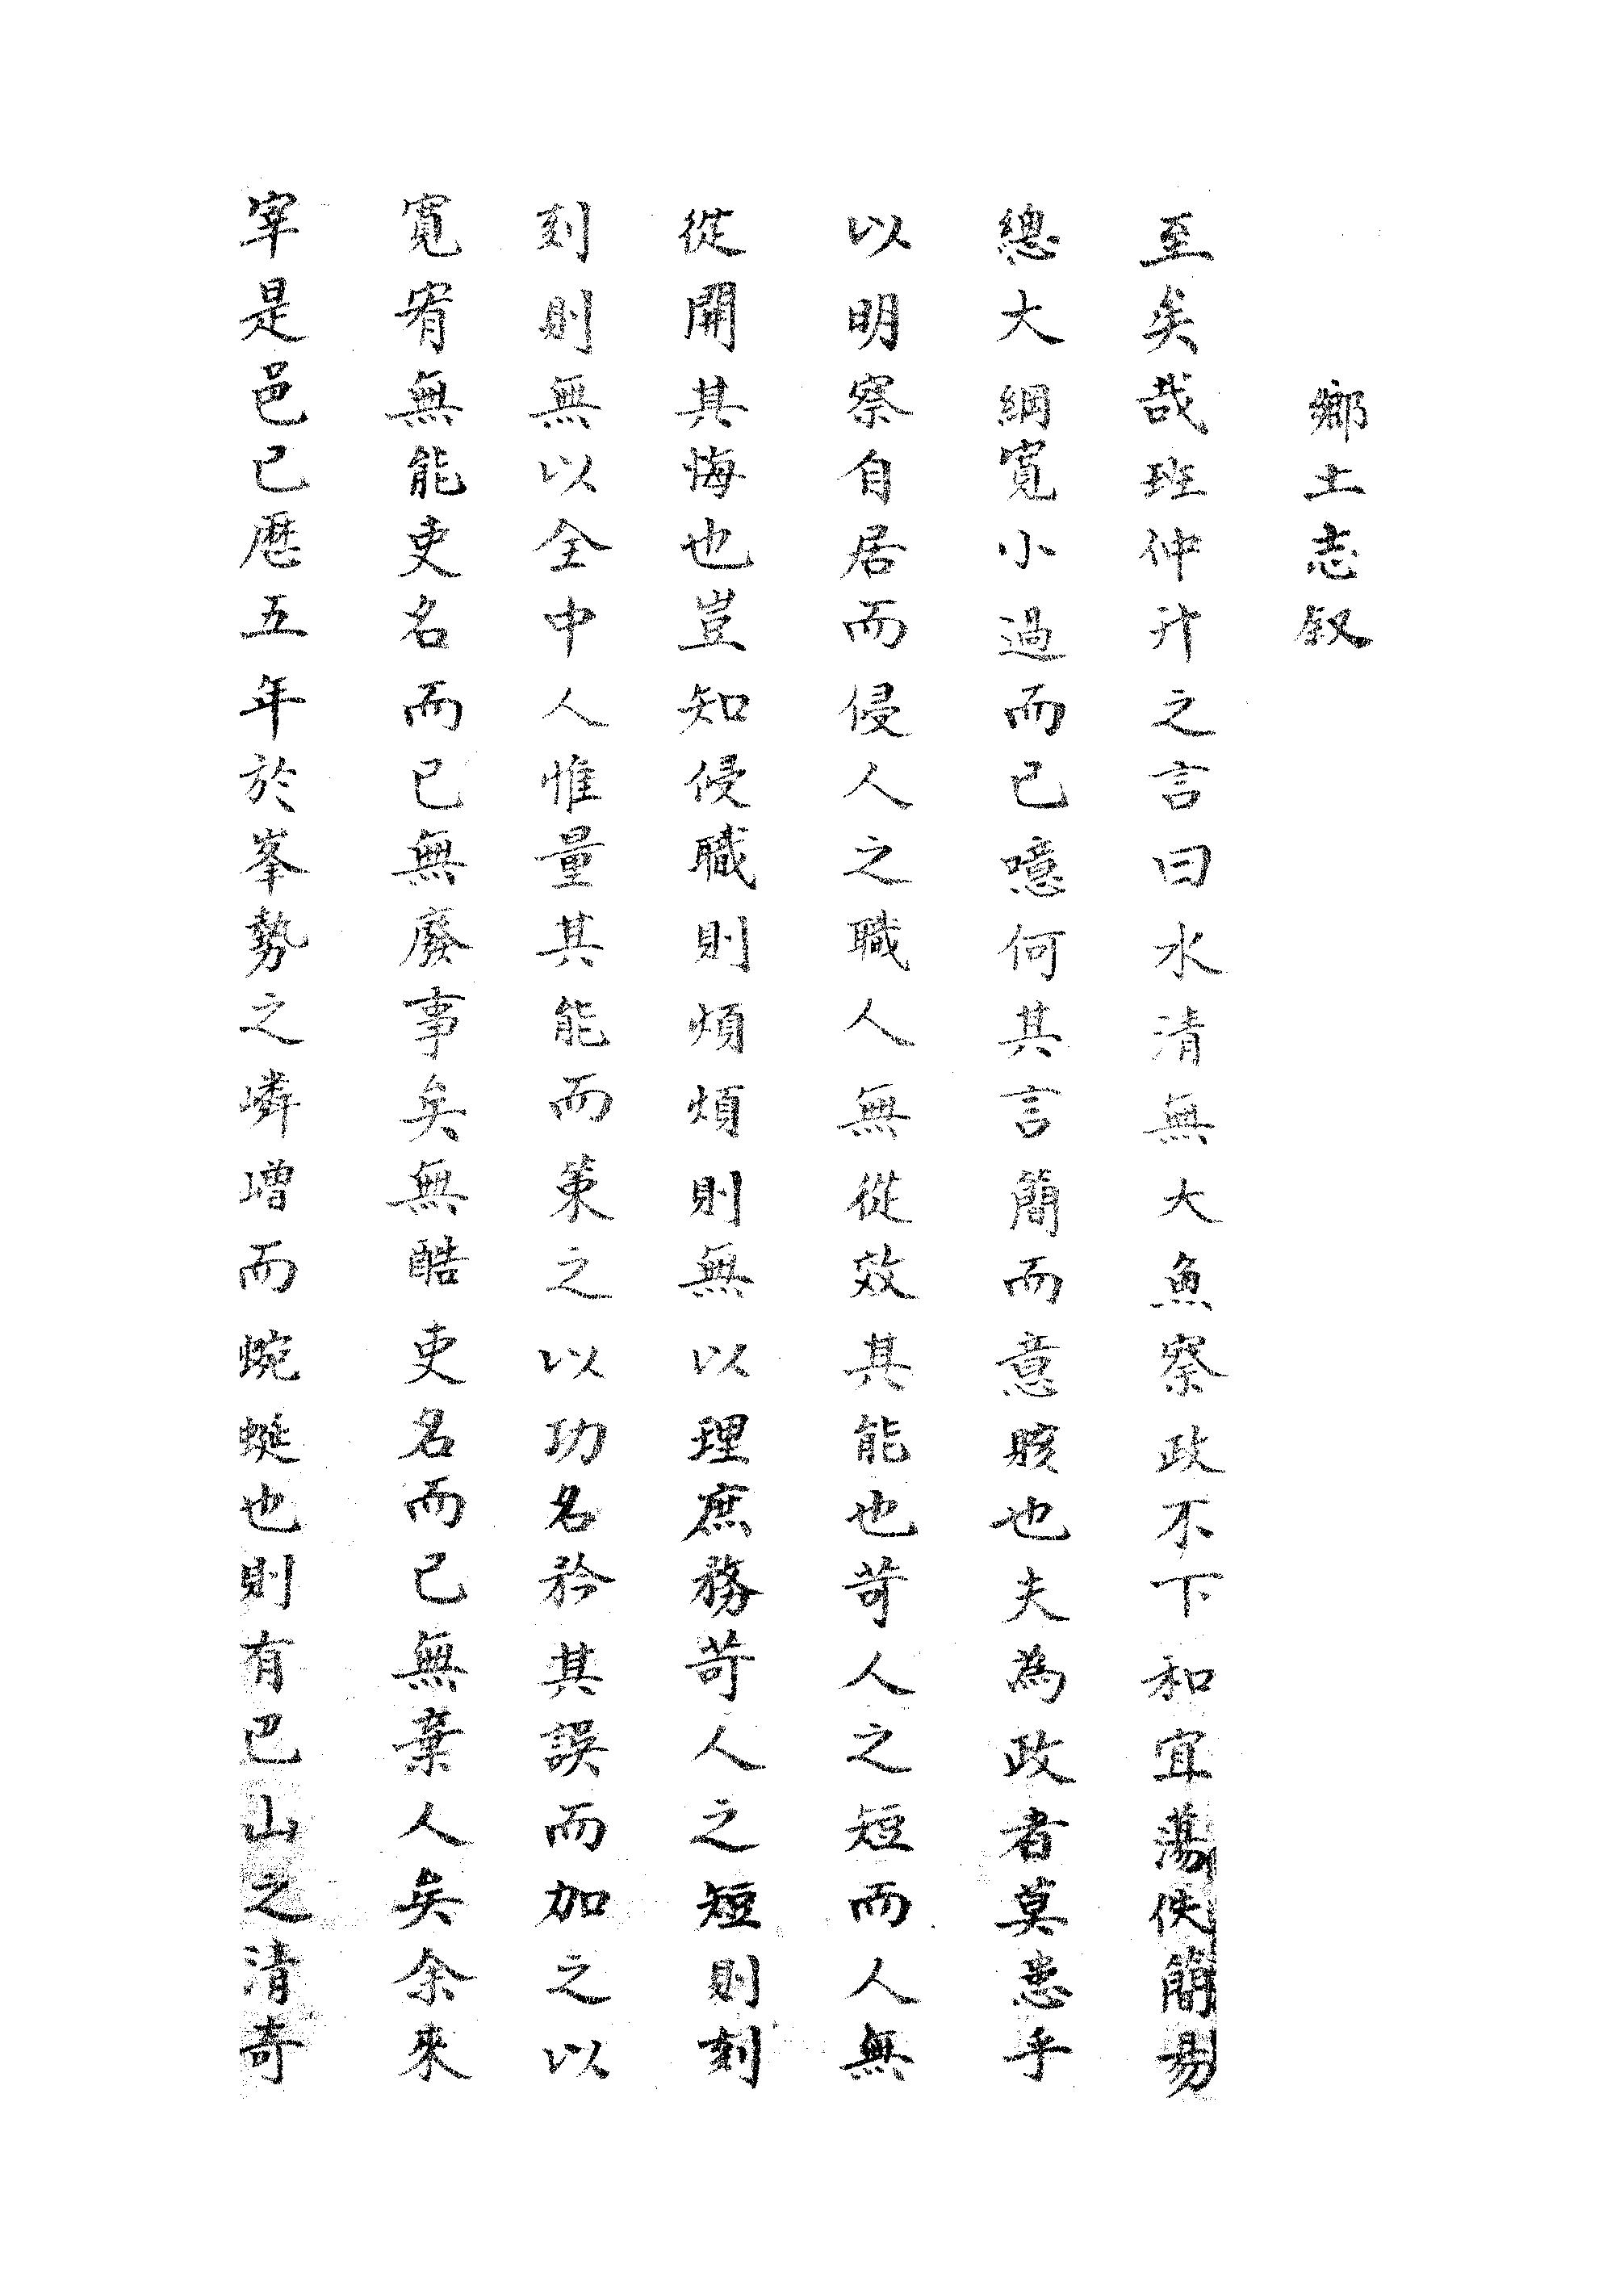 鄉土志叙
至矣哉班仲升之言曰水清無大魚察政不下和宜蕩佚簡易
總大綱寬小過而已噫何其言簡而意賅也夫為政者莫患乎
以明察自居而侵人之職人無從效其能也苛人之短而人無
從開其悔也豈知侵職則煩煩則無以理庶務苛人之短則刻
刻則無以全中人惟量其能而策之以功名矜其誤而加之以
寬宥無能吏名而已無廢事矣無酷吏名而已無棄人矣余來
宰是邑已歷五年於峯勢之嶙嶒而蜿蜒也則有巴山之清奇